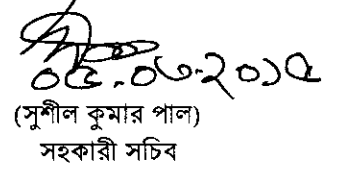 ০৫.০৩.২০১৫
(সুশীল কুমার পাল)
সহকারী সচিব